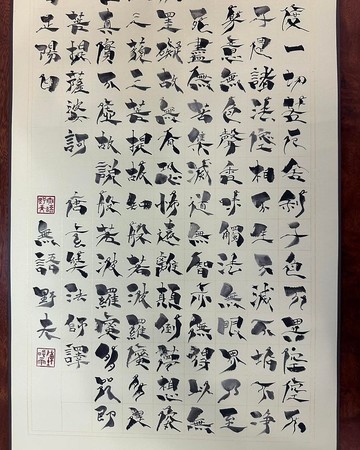 度一切苦厄舍利子色不異空空不
子是諸法空相不生不滅不垢不淨
身意無色聲香味觸法無眼界乃至
死盡無苦集滅道無智亦無得以無
罣礙故無有恐怖遠離顛倒夢想究
三藐三菩提故知般若波羅蜜多是
真實不虛故說般若波羅蜜多咒即
菩提薩婆訶 唐玄奘法師譯
正陽日 無語野夫